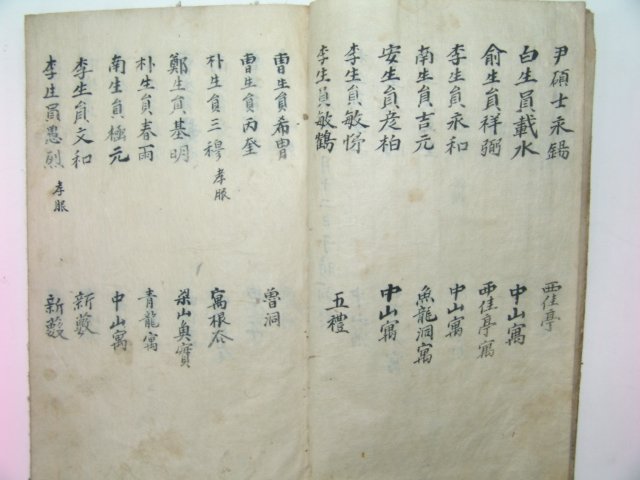 尹碩士永錫 西佳亭
白生員載水 中山寓
俞生員祥弼 西佳亭寓
李生員永和 中山寓
南生員吉元 魚龍洞寓
安生員彦柏 中山寓
李生員敏悌 五禮
李生員敏鶴
曺生員希胄 曽洞
曺生員丙奎
朴生員三穆 孝服 寓根谷
鄭生員基明 梁山奥寶
朴生員春雨 青龍寓
南生員極元 中山寓
李生員文和 新藪
李生員愚烈 孝服 新藪